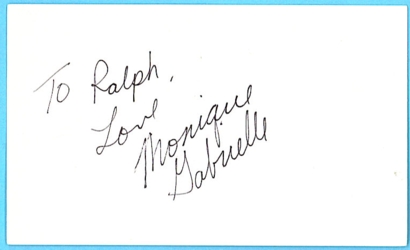 To Ralph,
Love
Monique
Gabrielle